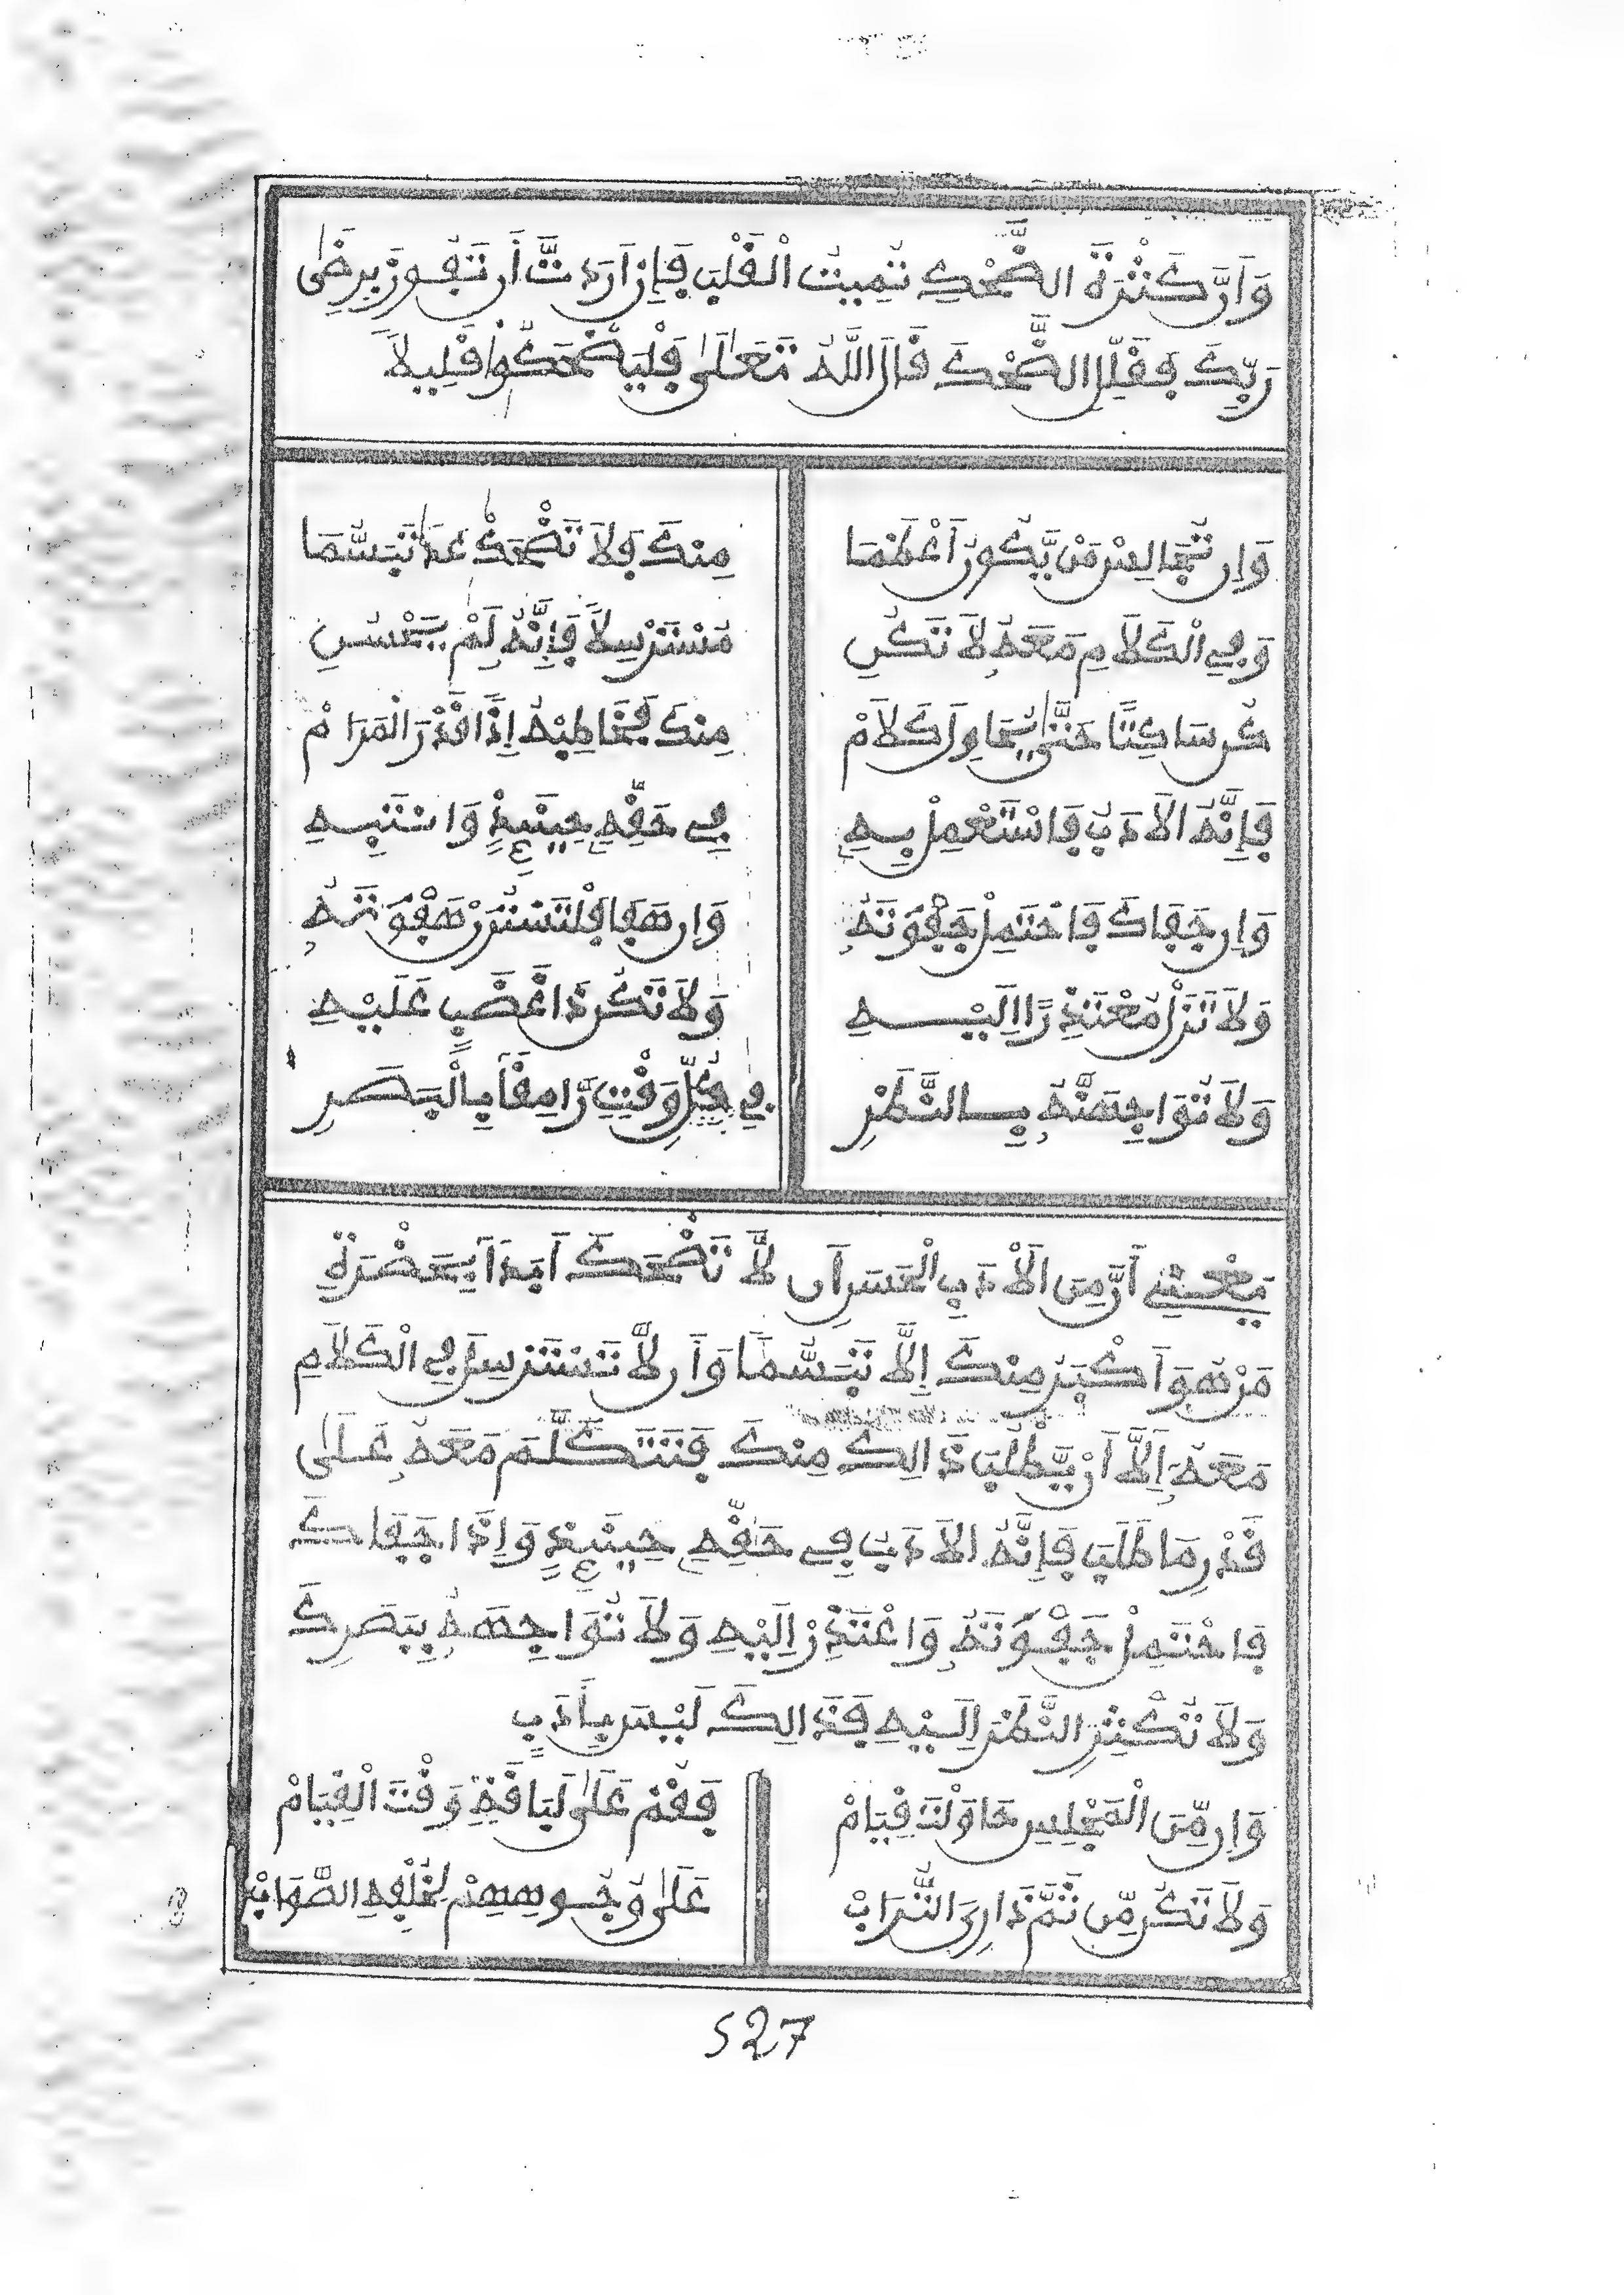 وَأَنَّ كَثْرَةَ الضَّحْكِ تُمِيتُ الْقَلْبَ فَإِنْ أَرَدتَّ أَن تَفُوزَ بِرِضَى
رَبِّكَ فَقَلِّلِ الضَّحْكَ قَالَ اللَّهُ تَعَلَى فَلْيَضْحَكُوا قَلِيلاً
وَإِن تُجَالِسْ مَنْ يَّكُونُ أَعْظَمَا مِنكَ فَلاَ تَضْحَكْ عَدَا تَبَسُّمَا
وَفِي الْكَلاَمِ مَعَهُ لاَ تَكُنِ مُسْتَرْسِلاً فَإِنَّهُ لَمْ يَحْسُنِ
كُن سَاكِتًا حَتَّى يُحَاوِلَ كَلاَمْ مِنكَ فَخَاطِبْهُ إِذًا قَدْرَ الْمَرَامْ
فَإِنَّهُ الاَدَبُ فَاسْتَعْمِلْ بِهِ فِي حَقِّهِ حِينَئِذٍ وَانتَبِهِ
وَإِن جَفَاكَ فَاحْتَمِلْ جَفْوَتَهُ وَإِن هَفَا فَلْتَسْتُرَنْ هَفْوَتَهُ
وَلاَ تَزَلْ مُعْتَذِرًا إِلَيْهِ وَلاَ تَكُن ذَا غَضَبٍ عَلَيْهِ
وَلاَ تُوَاجِهَنَّهُ بِالنَّظَرِ فِي كُلِّ وَقْتٍ رَّامِقًا بِالْبَصَرِ
يَعْنِي أَنَّ مِنَ اَلاَدَبِ الْحَسَنِ أَن لاَّ تَضْحَكَ أَبَدًا بِحَضْرَةِ
مَنْ هُوَ أَكْبَرُ مِنكَ إِلاَّ تَبَسُّمًا وَأَن لاَّ تَسْتَرْسِلَ فِي الْكَلاَمِ
مَعَهُ إِلاَّ أَنْ يَّطْلُبَ ذَالِكَ مِنكَ فَتَتَكَلَّمَ مَعَهُ عَلَى
قَدْرِ مَا طَلَبَ فَإِنَّهُ الاَدَبُ فِي حَقِّهِ حِينَئِذٍ وَإِذَا جَفَاكَ
فَاحْتَمِلْ جَفْوَتَهُ وَاعْتَذِرْ إِلَيْهِ وَلاَ تُوَاجِهْهُ بِبَصَرِكَ
وَلاَ تُكْثِرِ النَّظَرَ إِلَيْهِ فَذَالِكَ لَيْسَ بِأَدَبٍ
وَإِن مِّنَ الْمَجْلِسِ حَاوَلْتَ قِيَامْ فَقُمْ عَلَى لَبَاقَةٍ وَقْتَ الْقِيَامْ
وَلاَ تَكُن مِّن ثَمَّ ذَارِيَ التُّرَابْ عَلَى وُجُوهِهِمْ لِخُلْفِهِ الصَّوَابْ
527